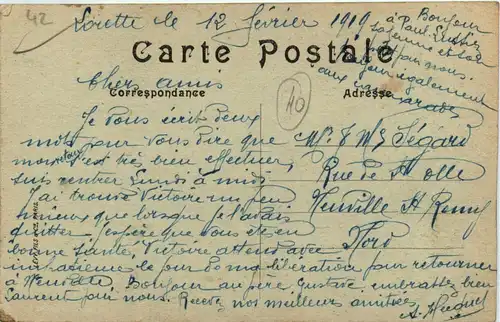 42
Lorette le 12 février 1919
Bonjour
à Paul
pour nous.
Bonjour également
aux camarades
Carte Postale
Chers amis
Correspondance
Adresse
40
Je vous écrit deux
mots pour vous dire que
mon retour s'est très bien effectuer,
suis rentrer Lundi à midi
J'ai trouvé Victoire un peu
mieux que lorsque je l'avais
quitter j'espère que vous êtes en
bonne santé, Victoire attend avec
impatience le jour de ma libération pour retourner
à Bonjour au père, Gustave embrassez bien
Laurent pour nous. Recevez nos meilleurs amitiés,
Mr & Me Ségard
Rue de St
Neuville St Remy
Nord